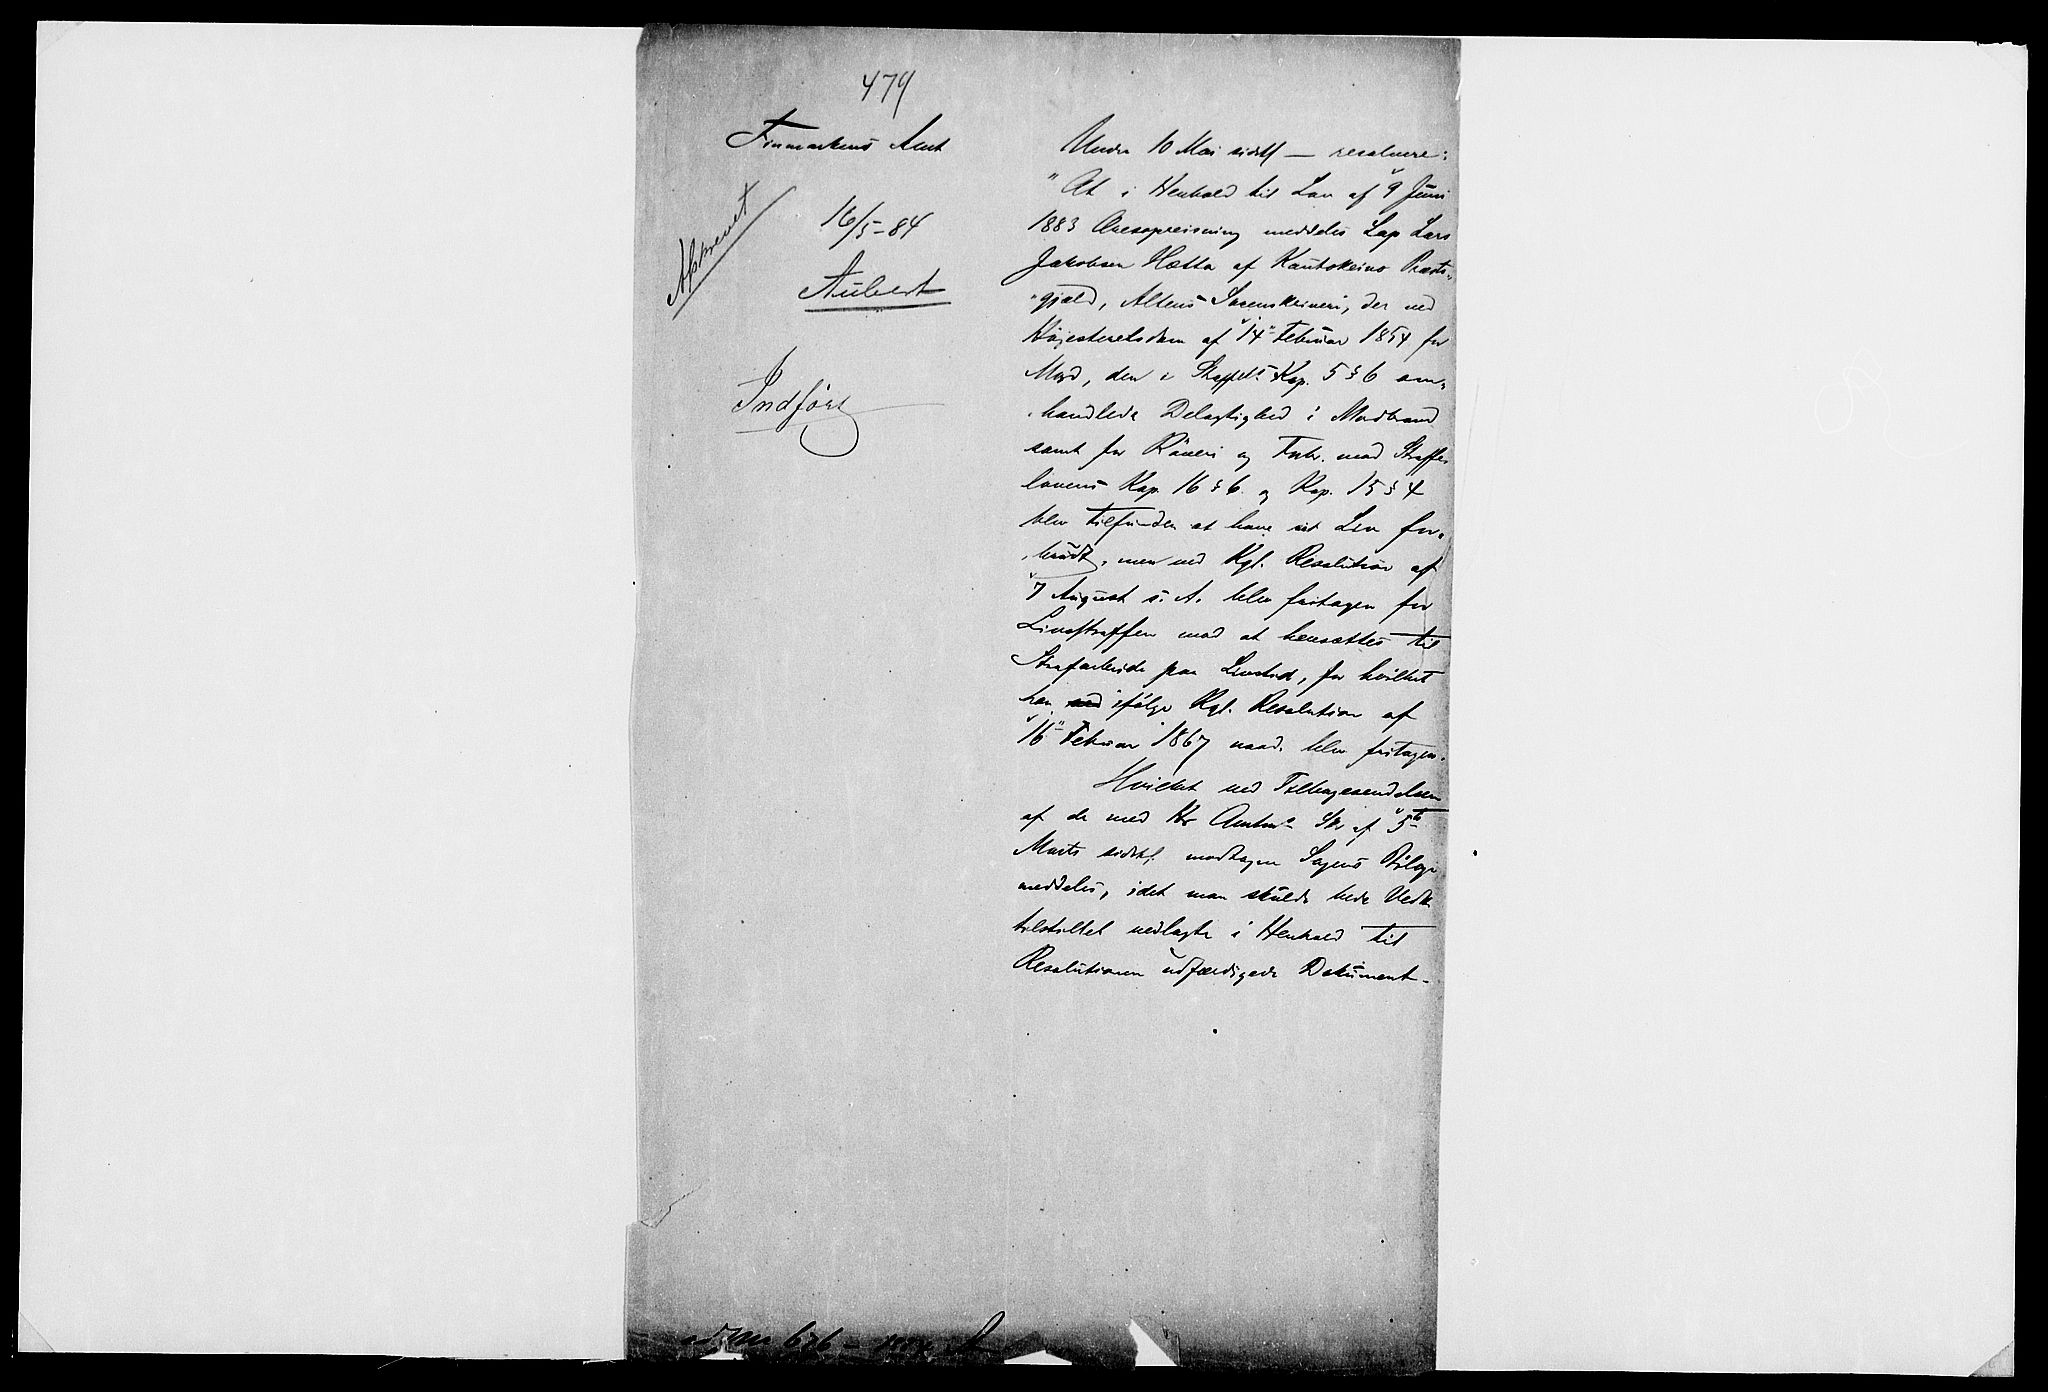 479
Finmarkens Amt
16/5-84
Aubert
Afskrevet
Indført
Under 10 Mai sidstl — resolvere:
"At i Henhold til Lov af 9 Juni
1883 Æresopreisning meddeles Lap Lars
Jakobsen Hætta af Kautokeino Præste-
gjæld, Altens Sorenskriveri, der ved
Høiesteretsdom af 14 Februar 1854 for
Mord, den i Straffel. Kap. 5 § 6 om-
handlede Delagtighed i Mordbrand
samt for Røveri og Forbr. mod Straffe
lovens Kap. 16 § 6. og Kap. 15 § 4
blev tilfunden at have sit Liv for-
brudt, men ved Kgl. Resolution af
7 August s. A. blev fritagen for
Livsstraffen mod at hensættes til
Strafarbeide paa Livstid, for hvilket
han ifølge Kgl. Resolution af
16 Februar 1867 naad. blev fritagen.
Hvilket ved Tilbagesendelsen
af de med Hr Amtm. Skr af 5te
Marts sidstl. modtagne Sagens Bilage
meddeles, idet man skulde bede Vedk
tilstillet vedlagte i Henhold til
Resolutionen udfærdigede Dokument-
676